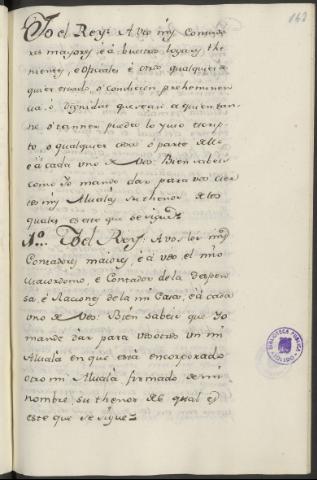 162
Yo el Rey: A vos mis Contado
res mayores é á buestros lugares the
nientes, e Oficiales é otro qualquier á
quier estado, ó condicion preheminen
cia, ó dignidat que sean a quien tan
ne ó tanner puede lo yuso escrip
to, o qualquier cosa ó parte dello
é á cada uno de vos: Bien sabeis
como Yo mande dar para vos cier
tos mis Alvalás su thenor de los
quales es este que se sigue
1º. Yo el Rey: A vos los mis
Contadores maiores, é á vos el mio
maiordomo, e Contador de la despen
sa, é Raciones de la mi Casa, é á cada
uno de vos: Bien sabeis que Yo
mande dar para vosotros un mi
Alvalá en que está encorporado
otro mi Alvalá firmado de mi
nombre, su thenor del qual es
este que se sigue
BIBLIOTECA PUBLICA
TOLEDO